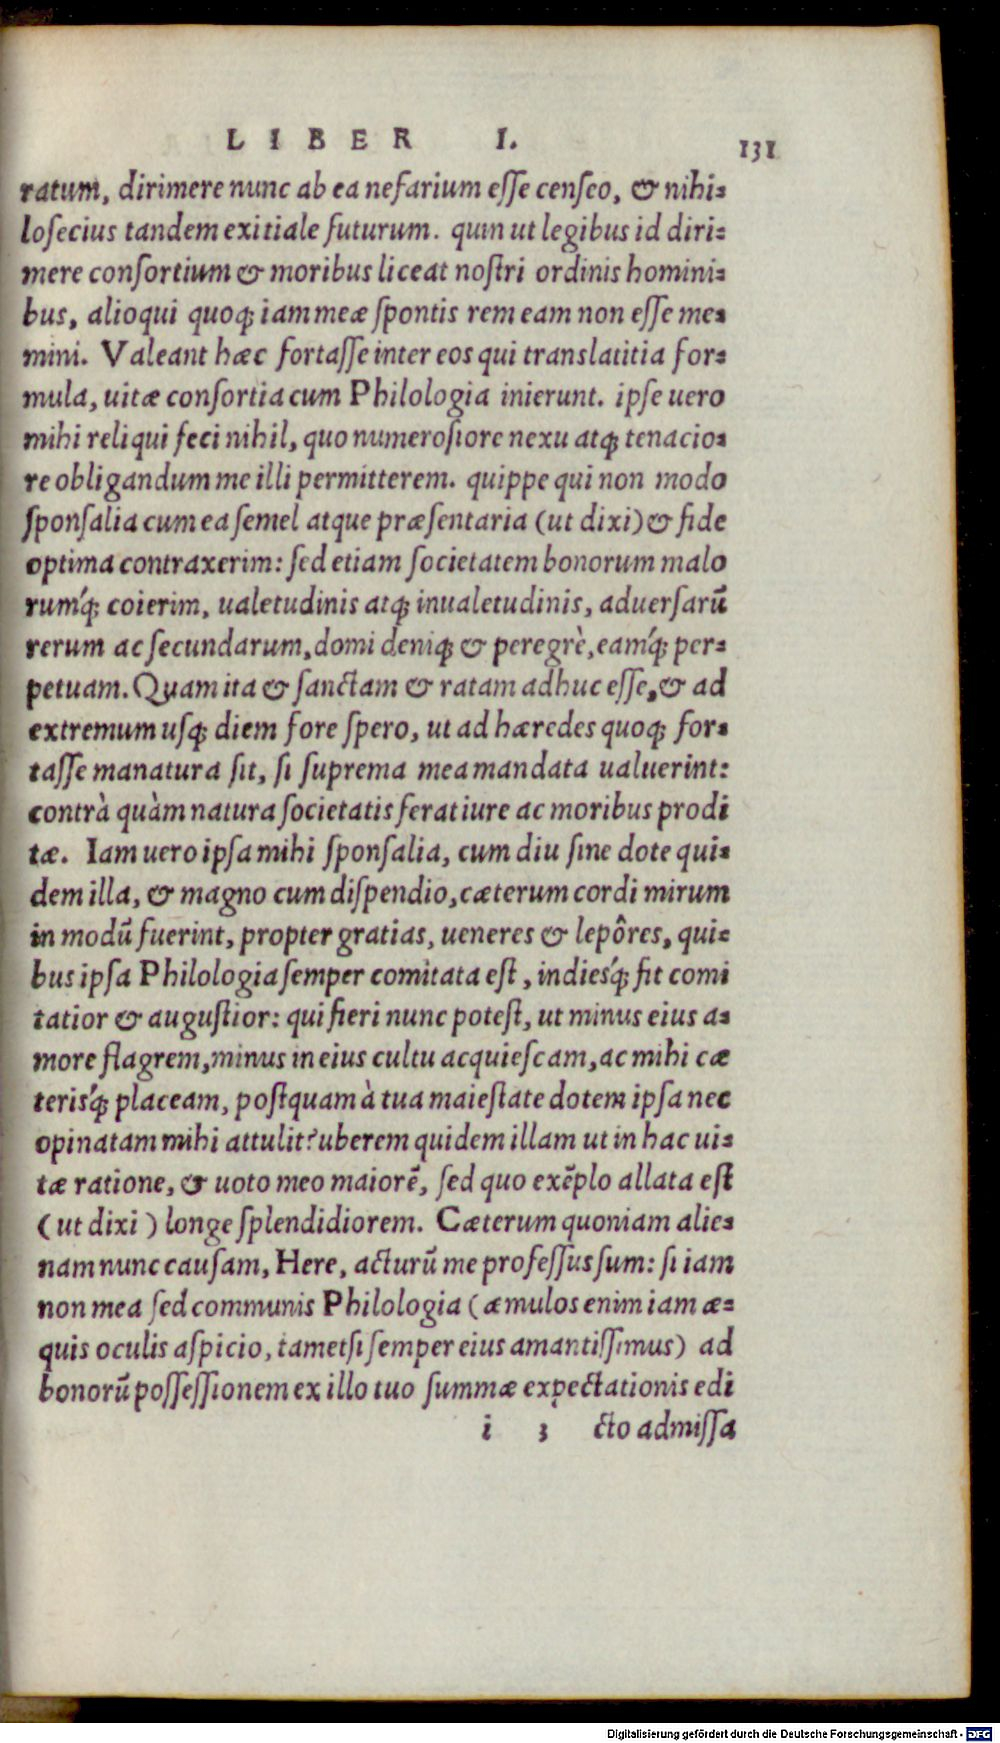 LIBER I. 131
ratum, dirimere nunc ab ea nefarium eſſe cenſeo, & nihi⸗
loſecius tandem exitiale futurum. quin ut legibus id diri⸗
mere conſortium & moribus liceat noſtri ordinis homini⸗
bus, alioqui quoqꝫ iam meæ ſpontis rem eam non eſſe me⸗
mini. Valeant hæc fortaſſe inter eos qui translatitia for⸗
mula, uitæ conſortia cum Philologia inierunt. ipſe uero
mihi reliqui feci nihil, quo numeroſiore nexu atqꝫ tenacio⸗
re obligandum me illi permitterem. quippe qui non modo
ſponſalia cum ea ſemel atque præſentaria (ut dixi) & fide
optima contraxerim: ſed etiam ſocietatem bonorum malo
rumq́ꝫ coierim, ualetudinis atqꝫ inualetudinis, aduerſarũ
rerum ac ſecundarum, domi deniqꝫ & peregrè, eamq́ꝫ per⸗
petuam. Quam ita & ſanctam & ratam adhuc eſſe, & ad
extremum uſqꝫ diem fore ſpero, ut ad hæredes quoqꝫ for⸗
taſſe manatura ſit, ſi ſuprema mea mandata ualuerint:
contrà quàm natura ſocietatis ferat iure ac moribus prodi
tæ. Iam uero ipſa mihi ſponſalia, cum diu ſine dote qui⸗
dem illa, & magno cum diſpendio, cæterum cordi mirum
in modũ fuerint, propter gratias, ueneres & lepôres, qui⸗
bus ipſa Philologia ſemper comitata eſt, indiesq́ꝫ fit comi
tatior & auguſtior: qui fieri nunc poteſt, ut minus eius a⸗
more flagrem, minus in eius cultu acquieſcam, ac mihi cæ
terisq́ꝫ placeam, poſtquam à tua maieſtate dotem ipſa nec
opinatam mihi attulit? uberem quidem illam ut in hac ui⸗
tæ ratione, & uoto meo maiorẽ, ſed quo exẽplo allata eſt
(ut dixi) longe ſplendidiorem. Cæterum quoniam alie⸗
nam nunc cauſam, Here, acturũ me profeſſus ſum: ſi iam
non mea ſed communis Philologia (æmulos enim iam æ⸗
quis oculis aſpicio, tametſi ſemper eius amantiſſimus) ad
bonorũ poſſeſſionem ex illo tuo ſummæ expectationis edi
i 3 cto admiſſa
Digitalisierung gefördert durch die Deutsche Forschungsgemeinschaft - DFG